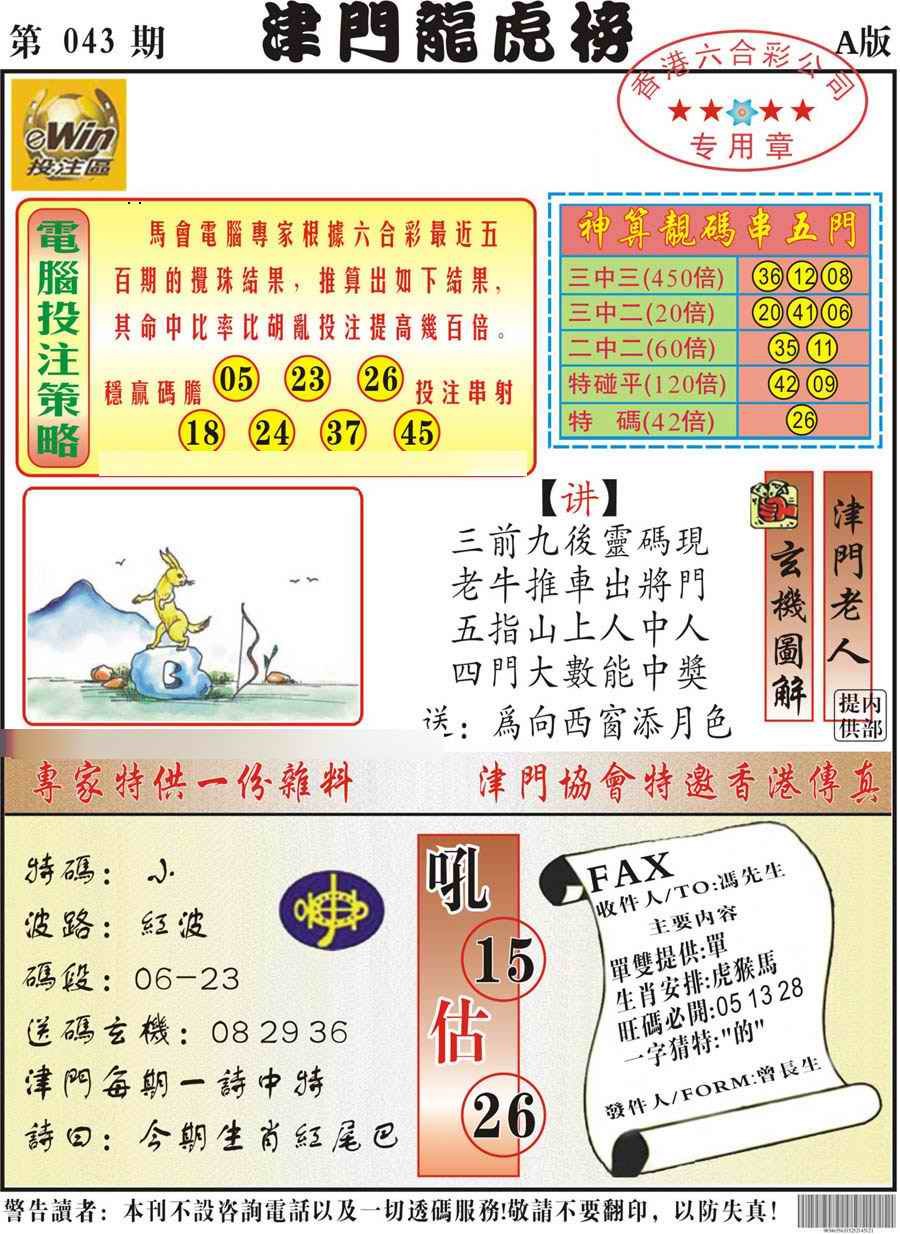 第 043 期
津門龍虎榜
A版
香港六合彩公司
专用章
eWin
投注區
電腦投注策略
馬會電腦專家根據六合彩最近五
百期的攪珠結果，推算出如下結果，
其命中比率比胡亂投注提高幾百倍。
穩贏碼膽 05 23 26 投注串射
18 24 37 45
神算靚碼串五門
三中三(450倍) 36 12 08
三中二(20倍) 20 41 06
二中二(60倍) 35 11
特碰平(120倍) 42 09
特 碼(42倍) 26
B
【讲】
三前九後靈碼現
老牛推車出將門
五指山上人中人
四門大數能中獎
送：爲向西窗添月色
玄機圖解
津門老人
内部提供
專家特供一份雜料
津門協會特邀香港傳真
特碼：小
波路：紅波
碼段：06-23
送碼玄機：08 29 36
津門每期一詩中特
詩曰：今期生肖紅尾巴
吼
15
估
26
FAX
收件人/TO:馮先生
主要内容
單雙提供:單
生肖安排:虎猴馬
旺碼必開:05 13 28
一字猜特:"的"
發件人/FORM:曾長生
警告讀者：本刊不設咨詢電話以及一切透碼服務!敬請不要翻印，以防失真!